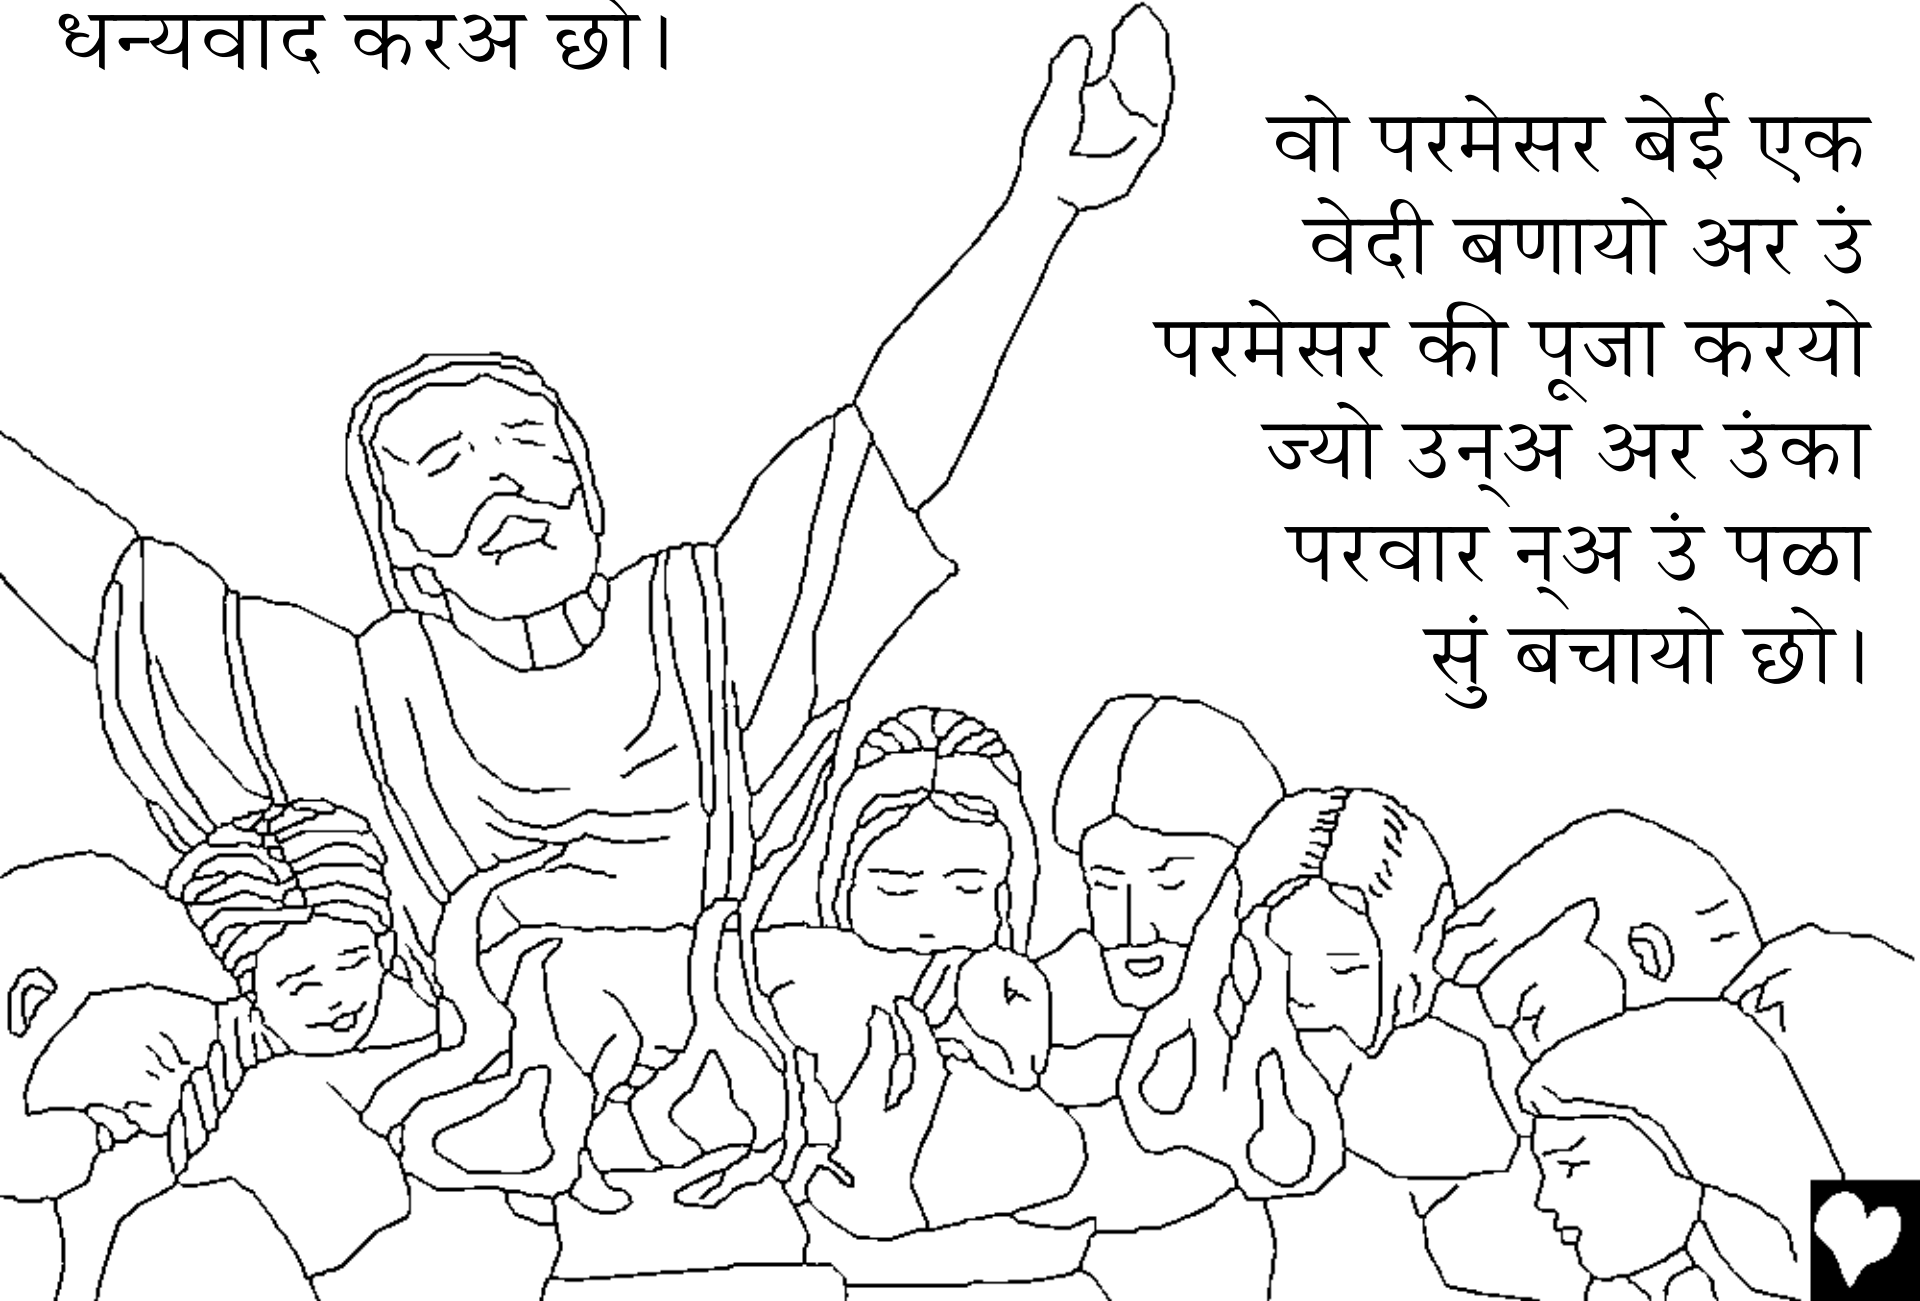 धन्यवाद करअ छो।
वो परमेसर बेई एक
वेदी बणायो अर उं
परमेसर की पूजा करयो
ज्यो उन्अ अर उंका
परवार न्अ उं पळा
सुं बचायो छो।